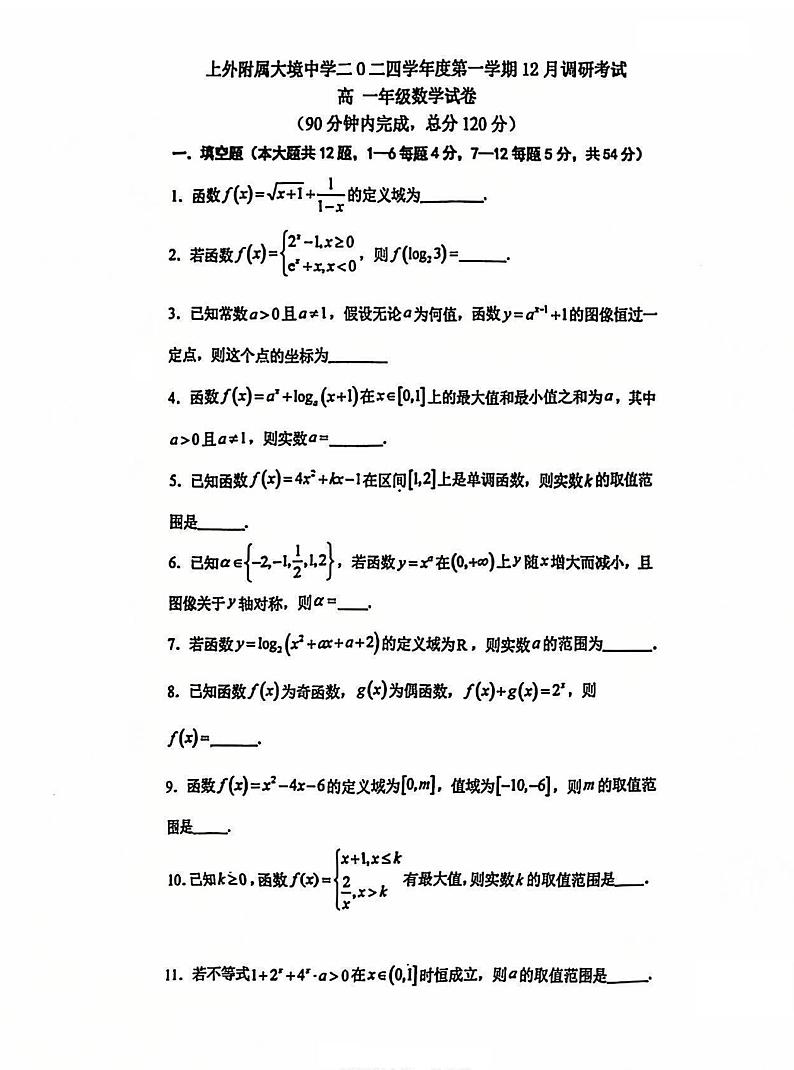 上外附属大境中学二0二四学年度第一学期12月调研考试
高 一年级数学试卷
（90分钟内完成，总分120分）
一．填空题（本大题共12题，1—6每题4分，7—12每题5分，共54分）
1．函数f(x)=√(x+1)+1/(1-x)的定义域为______.
2．若函数f(x)={2^x-1,x≥0 e^x+x,x<0，则f(log₂3)=______.
3．已知常数a>0且a≠1，假设无论a为何值，函数y=a^(x-1)+1的图像恒过一
定点，则这个点的坐标为______
4．函数f(x)=a^x+log_a(x+1)在x∈[0,1]上的最大值和最小值之和为a，其中
a>0且a≠1，则实数a=______.
5．已知函数f(x)=4x²+kx-1在区间[1,2]上是单调函数，则实数k的取值范
围是______.
6．已知α∈{-2,-1,1/2,1,2}，若函数y=x^α在(0,+∞)上y随x增大而减小，且
图像关于y轴对称，则α=____.
7．若函数y=log₂(x²+ax+a+2)的定义域为R，则实数a的范围为______.
8．已知函数f(x)为奇函数，g(x)为偶函数，f(x)+g(x)=2^x，则
f(x)=______.
9．函数f(x)=x²-4x-6的定义域为[0,m]，值域为[-10,-6]，则m的取值范
围是____.
10.已知k≥0,函数f(x)={x+1,x≤k 2/x,x>k 有最大值,则实数k的取值范围是____.
11．若不等式1+2^x+4^x·a>0在x∈(0,1]时恒成立，则a的取值范围是______.